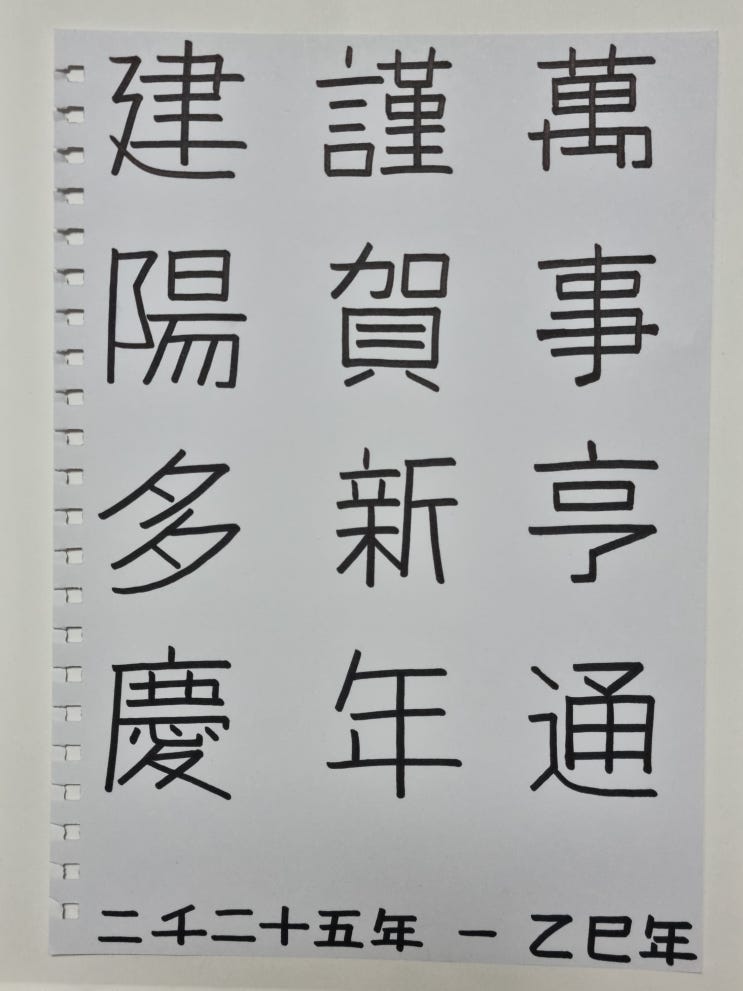 萬事亨通
謹賀新年
建陽多慶
二千二十五年 - 乙巳年